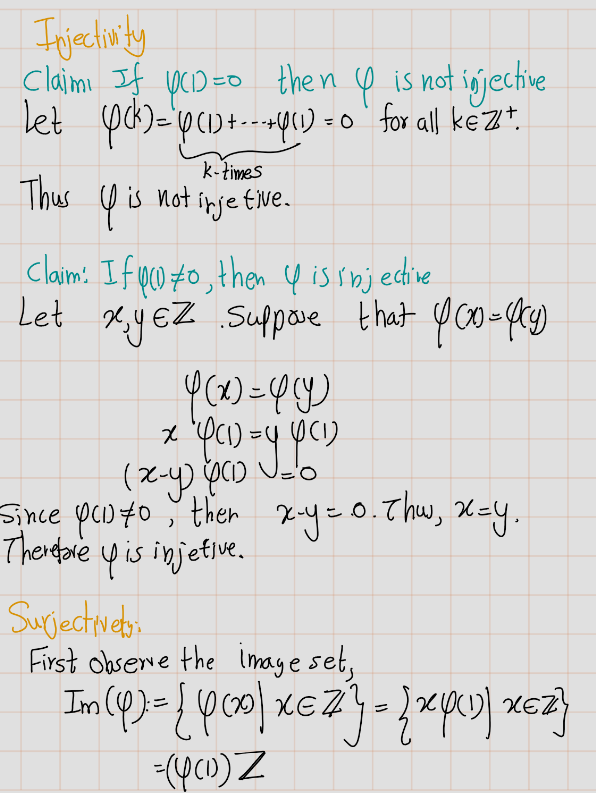 Injectivity
Claim: If φ(1)=0 then φ is not injective
Let φ(k)=φ(1)+---+φ(1) = 0 for all k∈ℤ⁺.
k-times
Thus φ is not injetive.
Claim: If φ(1)≠0, then φ is injective
Let x,y∈ℤ. Suppose that φ(x)=φ(y)
φ(x)=φ(y)
x φ(1)=y φ(1)
(x-y) φ(1) =0
Since φ(1)≠0, then x-y=0. Thus, x=y.
Therefore φ is injetive.
Surjectivety:
First observe the image set,
Im(φ):={φ(x)| x∈ℤ} = {xφ(1)| x∈ℤ}
=(φ(1))ℤ